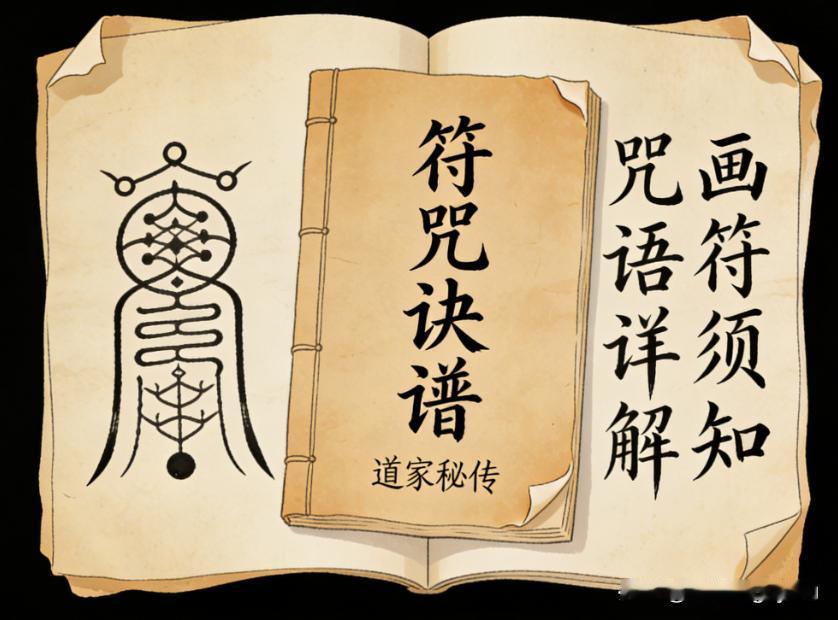 符咒诀谱
道家秘传
画符须知
咒语详解